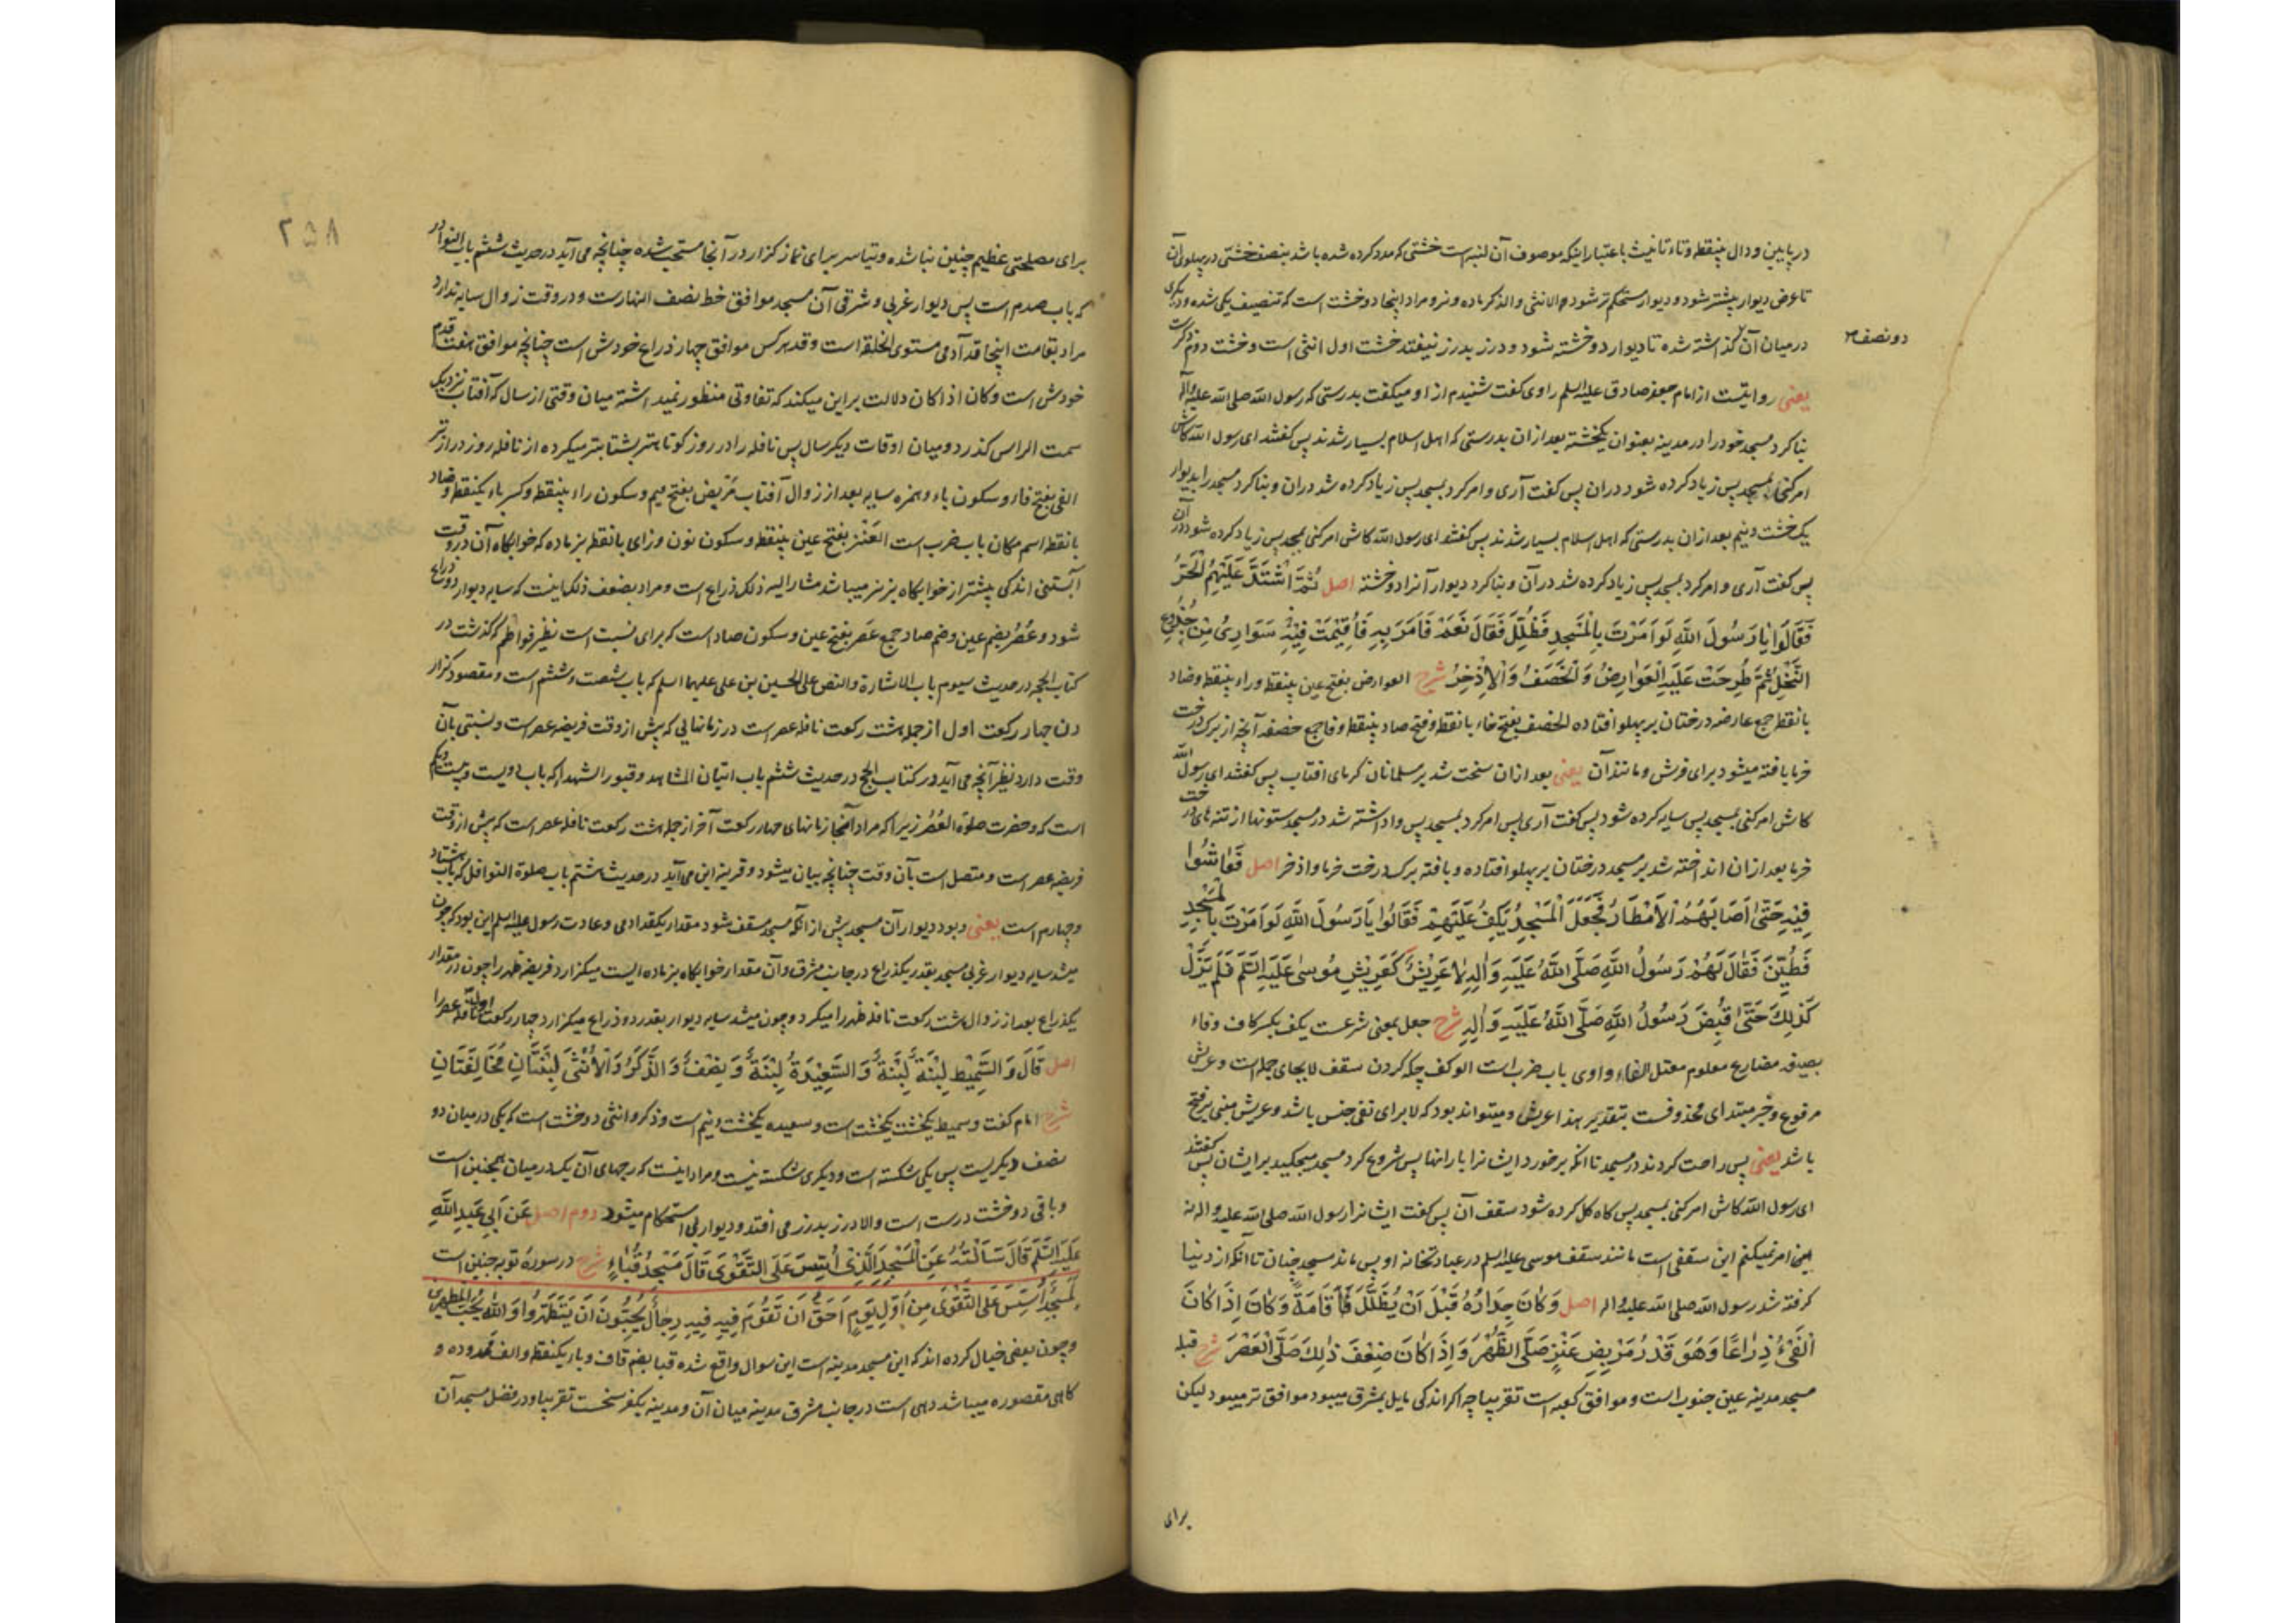 در پایین و دال بینقطه و تاء تانیث باعتبار اینکه موصوف آن لبنه است خشتی که مدد کرده شده باشد بنصف خشتی در پهلوی آن
تا عرض دیوار بیشتر شود و دیوار مستحکم تر شود و الانثی والذکر ماده و نر و مراد اینجا دو خشت است که تنصیف یکی شده و دیگری
درمیان آن گذاشته شده تا دیوار دو خشته شود و درز بدرز نیفتد خشت اول انثی است و خشت دوم ذکر است
دو نصف
یعنی روایتست از امام جعفر صادق علیه السلم راوی گفت شنیدم از او میگفت بدرستی که رسول الله صلی الله علیه وآله
بنا کرد مسجد خود را در مدینه بعنوان یکخشته بعد ازان بدرستی که اهل اسلام بسیار شدند پس گفتند ای رسول الله کاش
امر کنی بمسجد پس زیاد کرده شود دران پس گفت آری و امر کرد بمسجد پس زیاد کرده شد دران و بنا کرد مسجد را بدیوار
یک خشت و نیم بعد ازان بدرستی که اهل اسلام بسیار شدند پس گفتند ای رسول الله کاش امر کنی بمسجد پس زیاد کرده شود در آن
پس گفت آری و امر کرد بمسجد پس زیاد کرده شد در آن و بنا کرد دیوار آنرا دو خشته اصل ثُمَّ اشْتَدَّ عَلَيْهِمُ الْحَرُّ
فَقَالُوا يَا رَسُولَ اللَّهِ لَوْ أَمَرْتَ بِالْمَسْجِدِ فَظُلِّلَ فَقَالَ نَعَمْ فَأَمَرَ بِهِ فَأُقِيمَتْ فِيهِ سَوَارِيُ مِنْ جُذُوعِ
النَّخْلِ ثُمَّ طُرِحَتْ عَلَيْهِ الْعَوَارِضُ وَ الْخَصَفُ وَ الْإِذْخِرُ شرح العوارض بفتح عین بینقطه و راء بینقطه و ضاد
با نقطه جمع عارضه درختان بر پهلو افتاده الخصف بفتح خاء با نقطه و فتح صاد بینقطه و فا جمع خصفه آنچه از برک درخت
خرما بافته میشود برای فرش و مانند آن یعنی بعد ازان سخت شد بر مسلمانان گرمای افتاب پس گفتند ای رسول الله
کاش امر کنی بمسجد پس سایه کرده شود پس گفت آری پس امر کرد بمسجد پس واداشته شد در مسجد ستونها از تنه های درخت
خرما بعد ازان انداخته شد بر مسجد درختان بر پهلو افتاده و بافته برک درخت خرما و اذخر اصل فَعَاشُوا
فِيهِ حَتَّى أَصَابَهُمُ الْأَمْطَارُ فَجَعَلَ الْمَسْجِدُ يَكِفُ عَلَيْهِمْ فَقَالُوا يَا رَسُولَ اللَّهِ لَوْ أَمَرْتَ بِالْمَسْجِدِ
فَطُيِّنَ فَقَالَ لَهُمْ رَسُولُ اللَّهِ صَلَّى اللَّهُ عَلَيْهِ وَ آلِهِ لَا عَرِيشٌ كَعَرِيشِ مُوسَى عَلَيْهِ السَّلَمُ فَلَمْ يَزَلْ
كَذَلِكَ حَتَّى قُبِضَ رَسُولُ اللَّهِ صَلَّى اللَّهُ عَلَيْهِ وَ آلِهِ شرح جعل بمعنی شرعت یکف بکسر کاف و فاء
بصیغه مضارع معلوم معتل الفاء واوی باب ضرب است الوکف چکه کردن سقف لا بجای جمله است و عریش
مرفوع و خبر مبتدای محذوفست بتقدیر هذا عریش و میتواند بود که لا برای نفی جنس باشد و عریش مبنی بر فتح
باشد یعنی پس راحت کردند در مسجد تا انکه برخورد ایشانرا بارانها پس شروع کرد مسجد میچکید بر ایشان پس گفتند
ای رسول الله کاش امر کنی بمسجد پس کاه گل کرده شود سقف آن پس گفت ایشانرا رسول الله صلی الله علیه واله نه
این امر نمیکنم این سقفی است مانند سقف موسی علیه السلم در عبادتخانه او پس ماند مسجد چنان تا آنکه از دنیا
گرفته شد رسول الله صلی الله علیه واله اصل وَ كَانَ جِدَارُهُ قَبْلَ أَنْ يُظَلَّلَ قَامَةً وَ كَانَ إِذَا كَانَ
الْفَيْءُ ذِرَاعًا وَ هُوَ قَدْرُ مَرْبِضِ عَنْزٍ صَلَّى الظُّهْرَ وَ إِذَا كَانَ ضِعْفَ ذَلِكَ صَلَّى الْعَصْرَ شرح قبله
مسجد مدینه عین جنوب است و موافق کعبه است تقریبا چه اگر اندکی مایل بمشرق میبود موافق تر میبود لیکن
برای
۸۵۲
برای مصلحتی عظیم چنین بنا شده و تیاسر برای نماز گزار در آنجا مستحب شده چنانچه می آید در حدیث ششم باب النوادر
که باب صدم است پس دیوار غربی و شرقی آن مسجد موافق خط نصف النهار است و در وقت زوال سایه ندارد
مراد بقامت اینجا قد آدمی مستوی الخلقه است و قد هر کس موافق چهار ذراع خودش است چنانچه موافق هفت قدم
خودش است و کان اذا کان دلالت بر این میکند که تفاوتی منظور نمیداشته میان وقتی از سال که آفتاب نزدیک
سمت الراس گذرد و میان اوقات دیگر سال پس نافله را در روز کوتاهتر بشتابتر میکرده از نافله روز درازتر
الفی بفتح فاء و سکون یاء و همزه سایه بعد از زوال آفتاب مربض بفتح میم و سکون راء بینقطه و کسر باء یکنقطه و ضاد
با نقطه اسم مکان باب ضرب است العنز بفتح عین بینقطه و سکون نون و زای با نقطه بز ماده که خوابگاه آن در وقت
آبستنی اندکی بیشتر از خوابگاه بز نر میباشد مشار الیه ذلک ذراع است و مراد بضعف ذلک اینست که سایه دیوار دو ذراع
شود و عصر بضم عین و ضم صاد جمع عصر بفتح عین و سکون صاد است که برای نسبت است نظیر فواطم که گذشت در
کتاب الحجه در حدیث سیوم باب الاشاره والنص علی الحسین بن علی علیهما السلم که باب شصت و ششم است و مقصود گزار
دن چهار رکعت اول از جمله هشت رکعت نافله عصر است در زمانهایی که پیش از وقت فریضه عصر است و نسبتی بآن
وقت دارد نظیر آنچه می آید در کتاب الحج در حدیث ششم باب اتیان المشاهد و قبور الشهدا که باب دویست و بیست و یکم
است که و حضرت صلوة العصر زیرا که مراد آنجا زمانهای چهار رکعت آخر از جمله هشت رکعت نافله عصر است که پیش از وقت
فریضه عصر است و متصل است بآن وقت چنانچه بیان میشود و قرینه این می آید در حدیث هشتم باب صلوة النوافل که باب هشتاد
و چهارم است یعنی و بود دیوار آن مسجد پیش از آنکه مسجد مسقف شود مقدار یکقد ادمی و عادت رسول علیه السلم این بود که چون
میشد سایه دیوار غربی مسجد بقدر یکذراع در جانب مشرق و آن مقدار خوابگاه بز ماده ایست میگزارد فریضه ظهر را چون در مقدار
یکذراع بعد از زوال هشت رکعت نافله ظهر را میکرد و چون میشد سایه دیوار بقدر دو ذراع میگزارد چهار رکعت نافله عصر را
اصل قَالَ وَ السَّمِيطُ لَبِنَةٌ لَبِنَةٌ وَ السَّعِيدَةُ لَبِنَةٌ وَ نِصْفٌ وَ الذَّكَرُ وَ الْأُنْثَى لَبِنَتَانِ مُخَالِفَتَانِ
شرح امام گفت و سمیط یکخشت یکخشت است و سعیده یکخشت و نیم است و ذکر و انثی دو خشت است که یکی درمیان دو
نصف دیگریست پس یکی شکسته است و دیگری شکسته نیست و مراد اینست که رجهای آن یک درمیان همچنین است
و باقی دو خشت درست است والا درز بدرز می افتد و دیوار بی استحکام میشود دوم اصل عَنْ أَبِي عَبْدِ اللَّهِ
عَلَيْهِ السَّلَمُ قَالَ سَأَلْتُهُ عَنِ الْمَسْجِدِ الَّذِي أُسِّسَ عَلَى التَّقْوَى قَالَ مَسْجِدُ قُبَاءٍ شرح در سوره توبه چنین است
لَمَسْجِدٌ أُسِّسَ عَلَى التَّقْوَى مِنْ أَوَّلِ يَوْمٍ أَحَقُّ أَنْ تَقُومَ فِيهِ فِيهِ رِجَالٌ يُحِبُّونَ أَنْ يَتَطَهَّرُوا وَ اللَّهُ يُحِبُّ الْمُطَّهِّرِينَ
و چون بعضی خیال کرده اند که این مسجد مدینه است این سوال واقع شده قبا بضم قاف و باء یکنقطه و الف ممدوده و
گاهی مقصوره میباشد دهی است در جانب مشرق مدینه میان آن و مدینه یکفرسخست تقریبا و در فضل مسجد آن